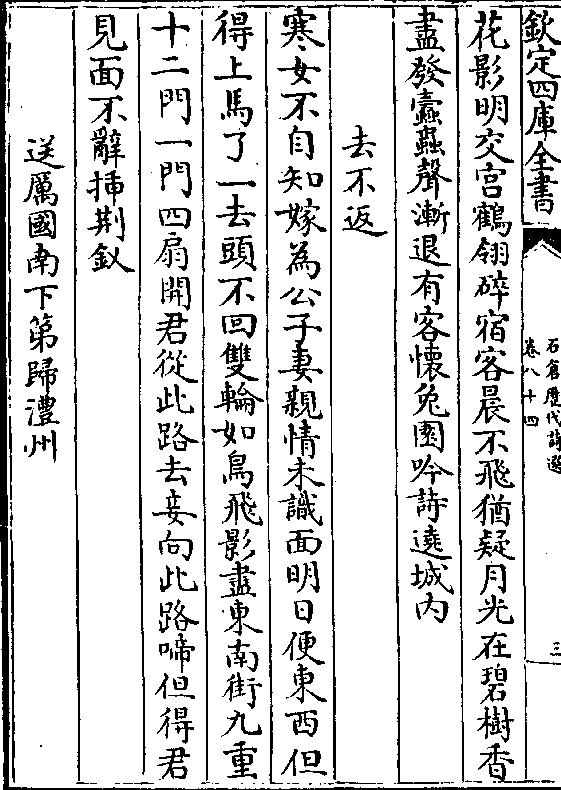 欽定四庫全書
石倉歷代詩選
卷八十四
三
花影明交宫鶴翎碎宿客晨不飛猶疑月光在碧樹香
盡發蠹蟲聲漸退有客懷兔園吟詩遶城内
去不返
寒女不自知嫁為公子妻親情未識面明日便東西但
得上馬了一去頭不回雙輪如鳥飛影盡東南街九重
十二門一門四扇開君從此路去妾向此路啼但得君
見面不辭揷荆釵
送厲國南下第歸澧州